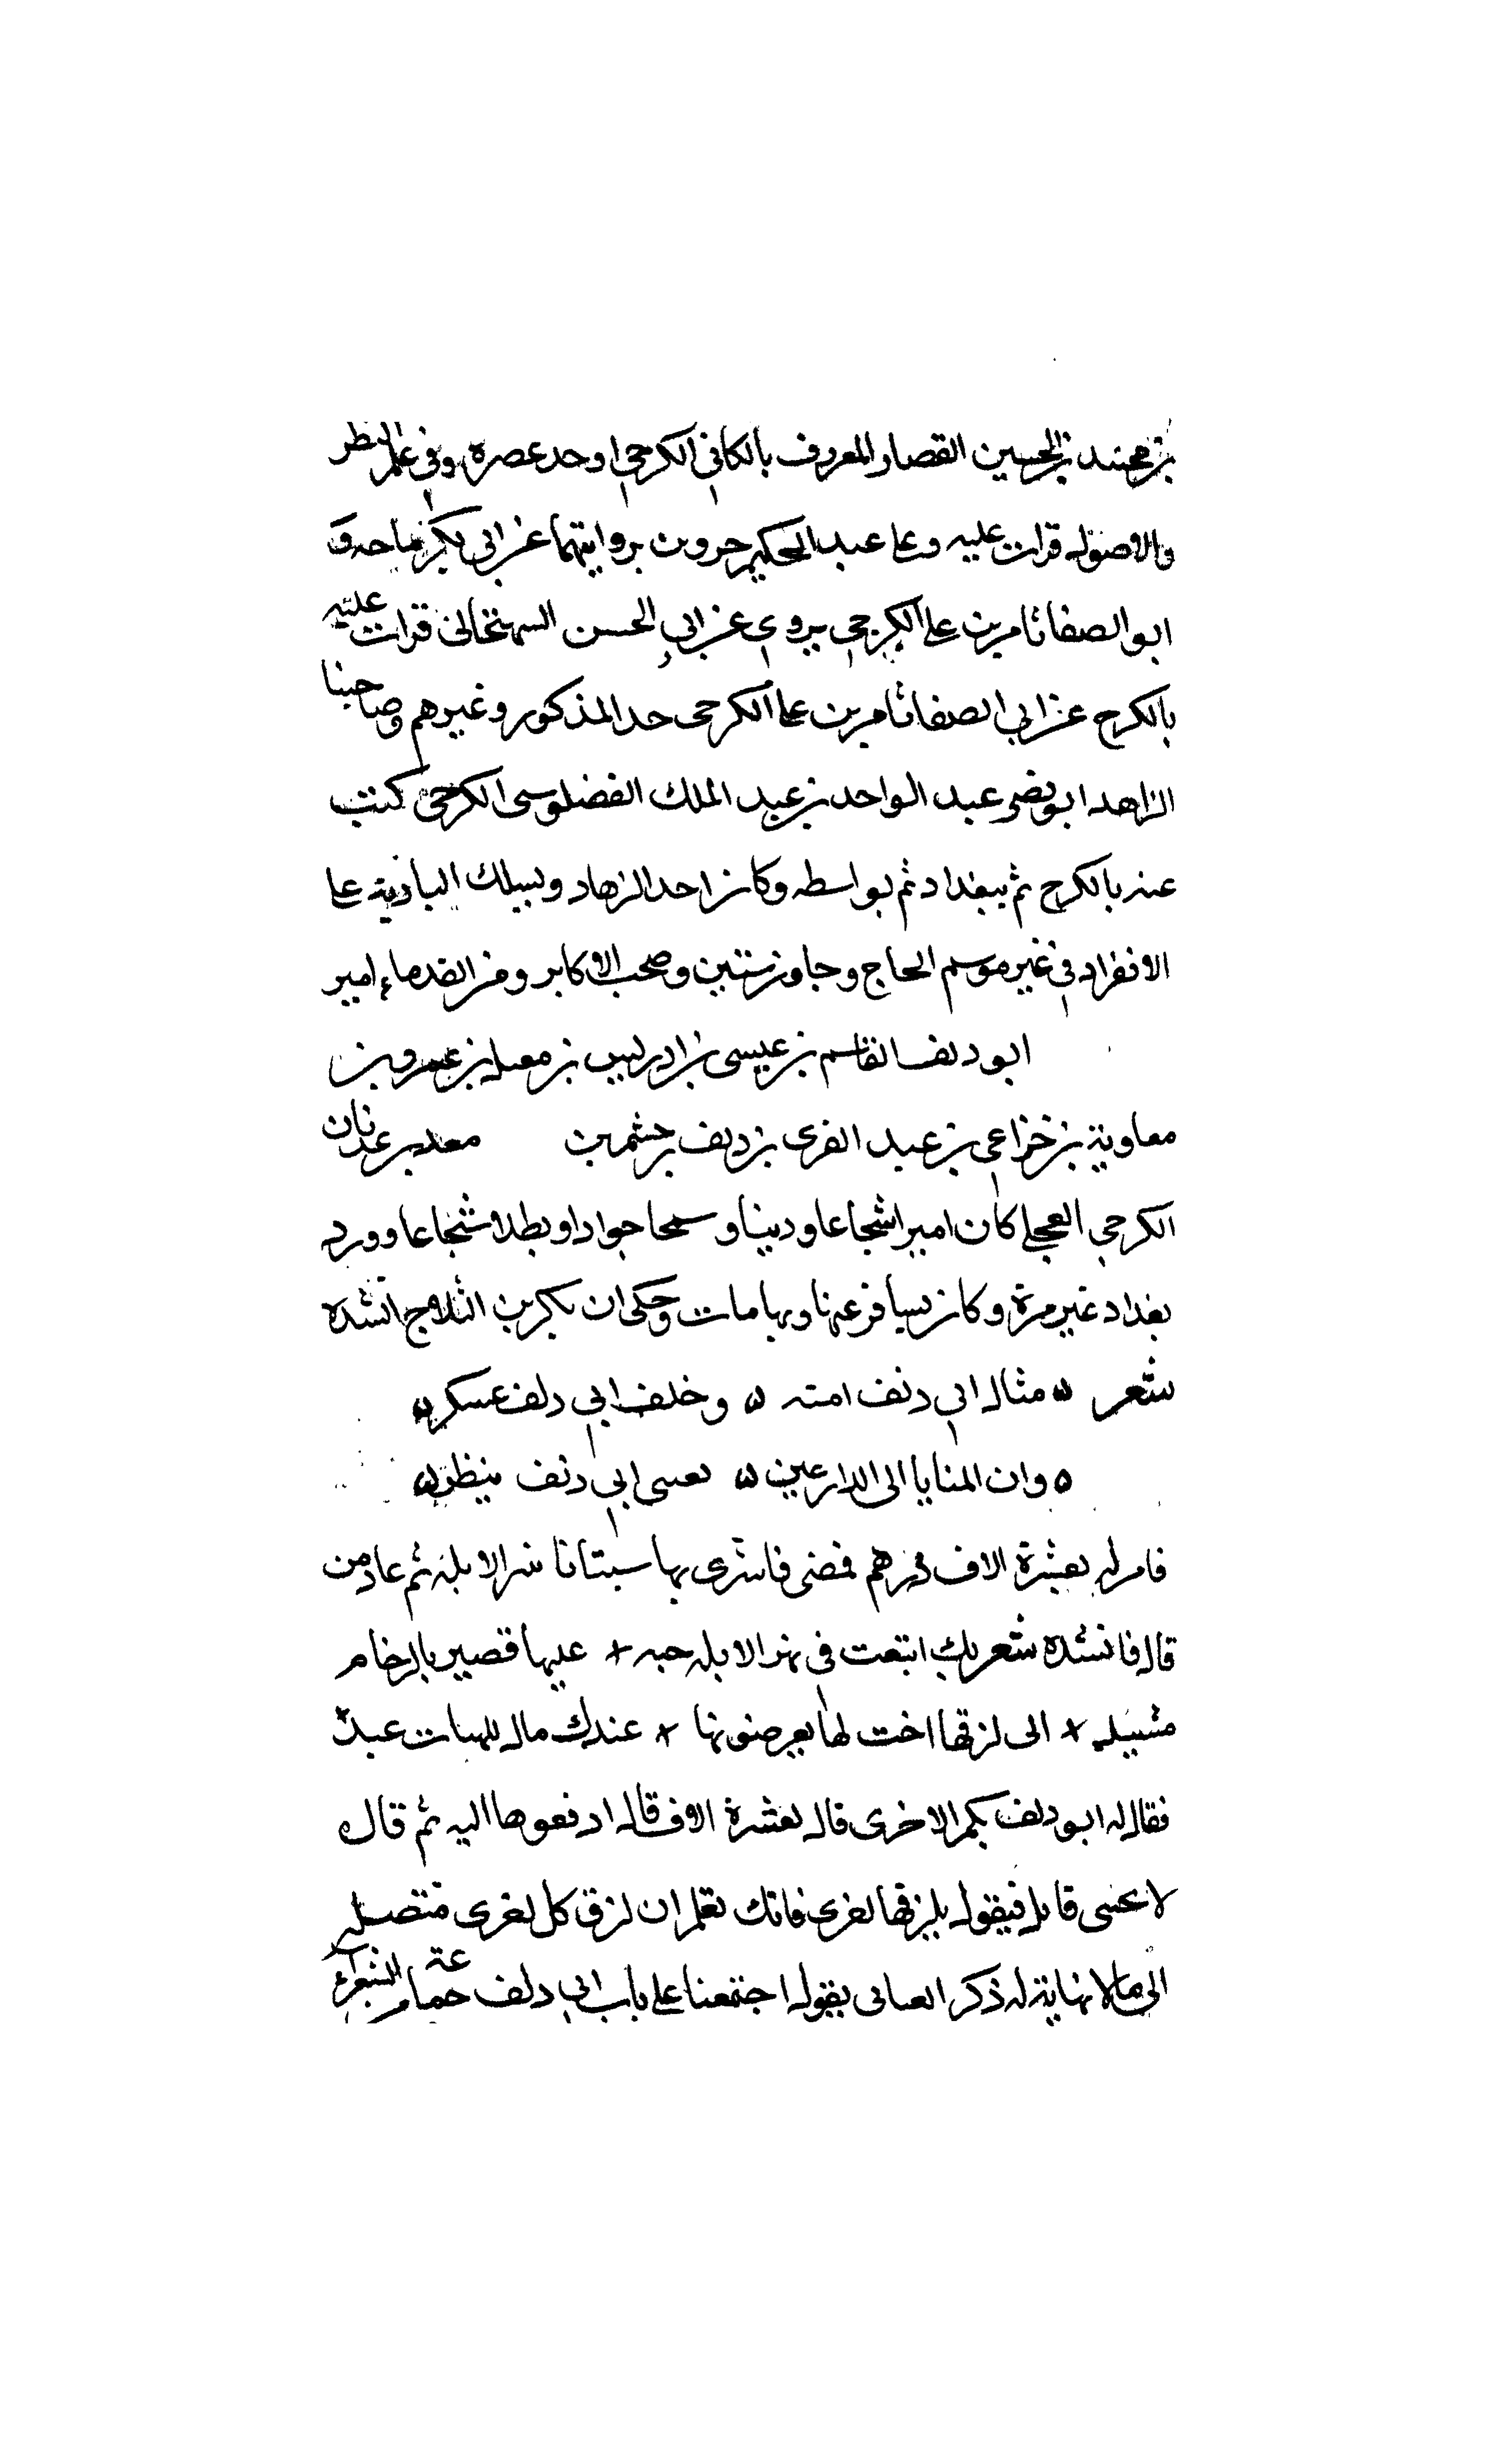 بن محمد بن الحسين القصار المعروف بالكافي الكرجي اوحد عصره وفي علم النظر
والاصول قرات عليه وعلى عبد الحكيم بروايتهما عن ابي بكر بن ماجه و
ابو الصفا ثامر بن علي الكرجي يروي عن ابي الحسن قرات عليه
بالكرج عن ابي الصفا ثامر بن علي الكرجي المذكور وغيرهم وصاحبنا
الزاهد ابو نصر عبد الواحد بن عبد الملك الفضلوسى الكرجي كتبت
عنه بالكرج ثم ببغداد ثم بواسط وكان احد الزهاد ويسلك البادية على
الانفراد في غير موسم الحاج وجاور سنتين وصحب الاكابر ومن القدماء امير
ابو دلف القاسم بن عيسى بن ادريس بن معقل بن عمرو بن
معاوية بن خزاعي بن عبد العزى بن دلف بن جشم بن معد بن عدنان
الكرجي العجلي كان اميرا شجاعا وديبا وسمحا جوادا وبطلا شجاعا وورد
بغداد غير مرة وكان يسافر عنها وبها مات وحكى ان بكر بن انشده
شعر ۵ مثال ابي دلف امته ۵ وخلف ابي دلف عسكر ۵
۵ وان المنايا الى الدارعين ۵ بعينى ابي دلف ينظر ۵
فامر له بعشرة الاف درهم فمضى فاشترى بها بستانا بنهر الابلة ثم عاد من
قال فانشده شعر بك ابتعت في نهر الابلة عليها قصير بالرخام
مشيد + الى لزقها اخت لها يعرضونها + عندك مال للهبات عبد
فقال له ابو دلف بكم الاخرى قال بعشرة الاف قال ادفعوها اليه ثم قال
لا تجئني قابل فيقول بلزقها اخرى فانك تعلم ان لزق كل اخرى متصله
الى ما لا نهاية له ذكر يقول اجتمعنا على باب ابي دلف جماعة من الشعراء